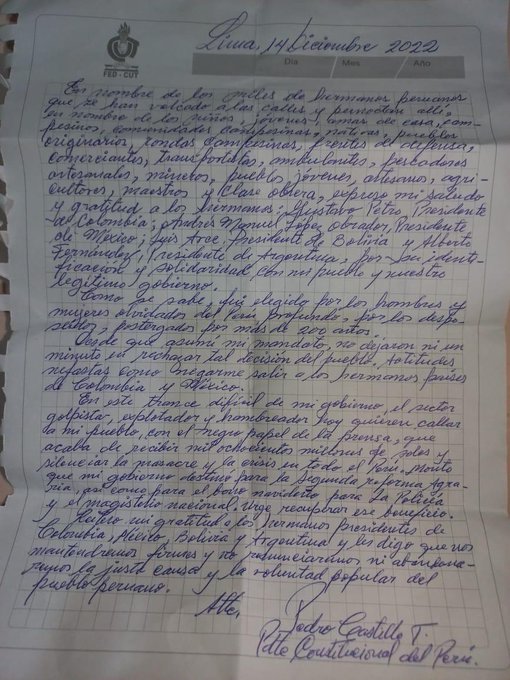 FED-CUT
Lima, 14 Diciembre 2022
Día Mes Año
En nombre de los miles de hermanos peruanos
que se han volcado a las calles y pernoctan allí,
en nombre de los niños, jóvenes, amas de casa, cam-
pesinos, comunidades campesinas, nativas, pueblos
originarios, rondas campesinas, frentes de defensa,
comerciantes, transportistas, ambulantes, pescadores
artesanales, mineros, pueblos jóvenes, artesanos, agri-
cultores, maestros y clase obrera, expreso mi saludo
y gratitud a los hermanos: Gustavo Petro, Presidente
de Colombia; Andrés Manuel López Obrador, Presidente
de México; Luis Arce, Presidente de Bolivia y Alberto
Fernández, Presidente de Argentina, por su identi-
ficación y solidaridad con mi pueblo y nuestro
legítimo gobierno.
Como se sabe, fui elegido por los hombres y
mujeres olvidados del Perú profundo, por los despo-
seídos, postergados por más de 200 años.
Desde que asumí mi mandato, no dejaron ni un
minuto en rechazar tal decisión del pueblo. Actitudes
nefastas como negarme salir a los hermanos países
de Colombia y México.
En este trance difícil de mi gobierno, el sector
golpista, explotador y hambreador hoy quieren callar
a mi pueblo, con el negro papel de la prensa, que
acaba de recibir mil ochocientos millones de soles y
silenciar la masacre y la crisis en todo el Perú. Monto
que mi gobierno destinó para la segunda reforma Agra-
ria, así como para el bono navideño para la Policía
y el magisterio nacional. Urge recuperar ese beneficio.
Reitero mi gratitud a los hermanos presidentes de
Colombia, México, Bolivia y Argentina y les digo que nos
mantendremos firmes y no renunciaremos ni abandona-
remos la justa causa y la voluntad popular del
pueblo peruano.
Atte,
Pedro Castillo T.
Pdte Constitucional del Perú.